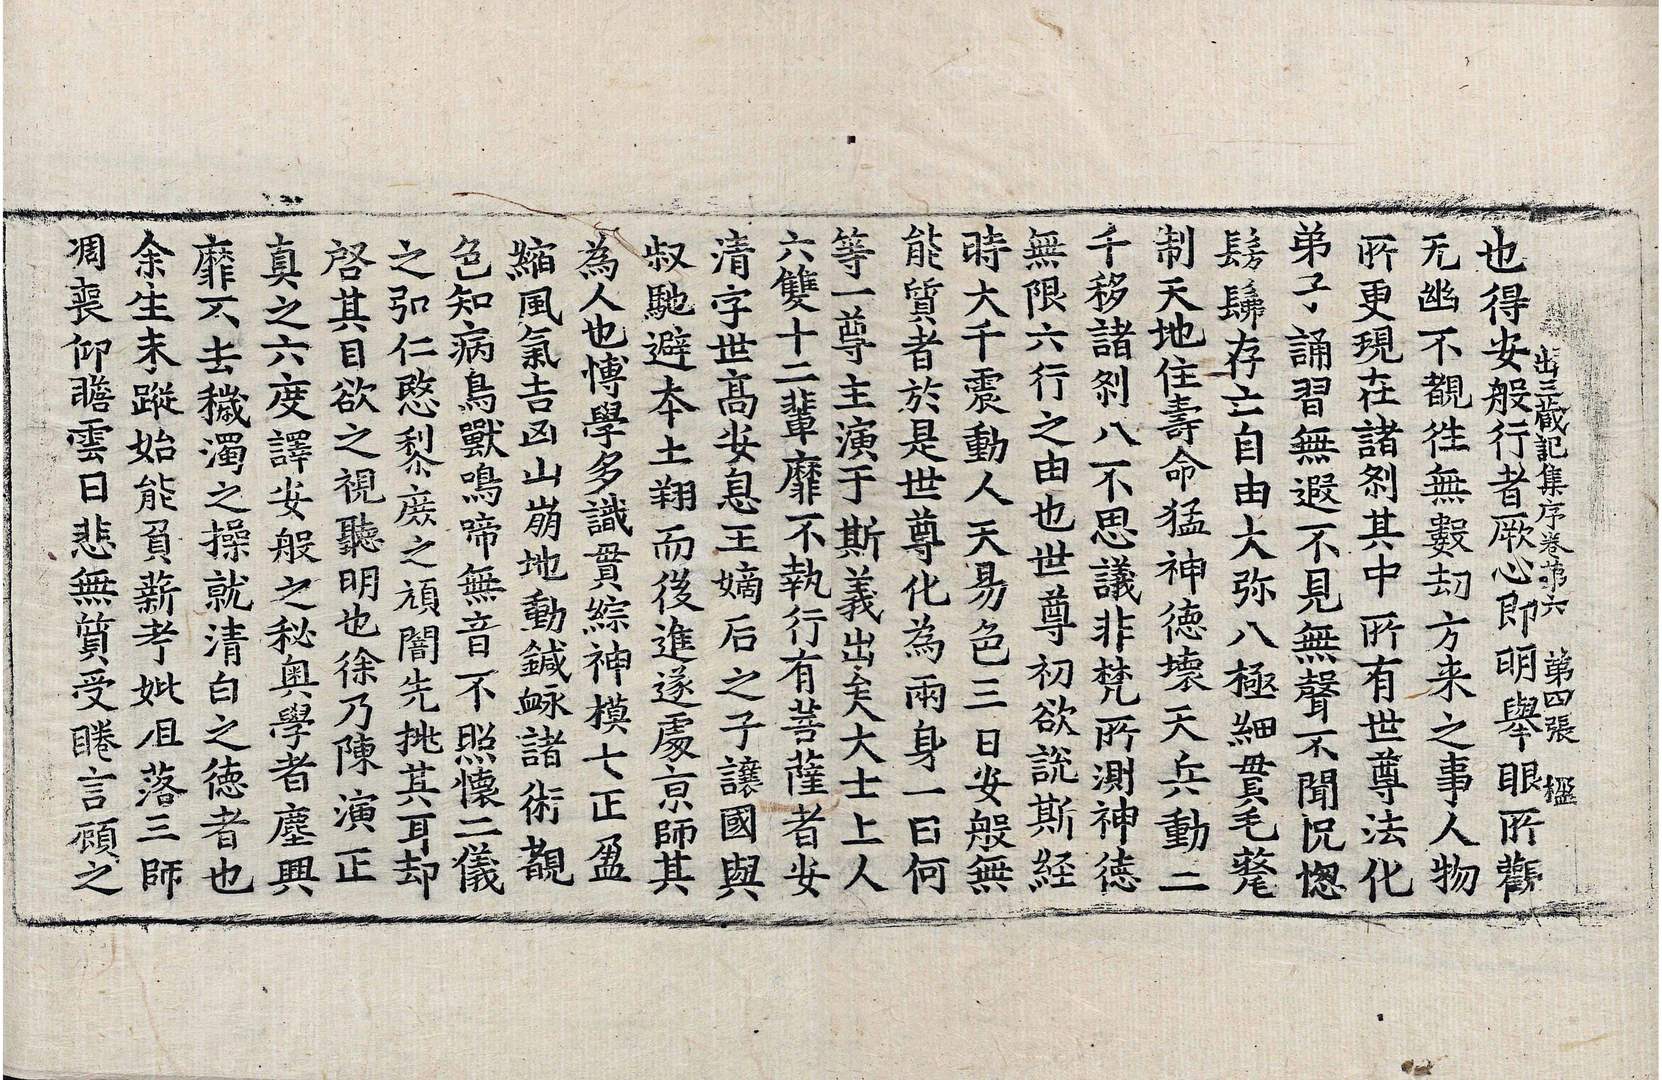 出三藏記集序卷第六　第四張　楹
也得安般行者厥心即明舉眼所觀
无幽不覩徃無數劫方来之事人物
所更現在諸刹其中所有世尊法化
弟子誦習無遐不見無聲不聞怳惚
髣髴存亡自由大弥八極細貫毛氂
制天地住壽命猛神德壞天兵動二
千移諸刹八不思議非梵所測神德
無限六行之由也世尊初欲說斯經
時大千震動人天易色三日安般無
能質者於是世尊化為兩身一曰何
等一尊主演于斯義出矣大士上人
六雙十二輩靡不執行有菩薩者安
清字世高安息王嫡后之子讓國與
叔馳避本土翔而後進遂處京師其
為人也愽學多識貫綜神模七正盈
縮風氣吉凶山崩地動鍼䘑諸術覩
色知病鳥獸鳴啼無音不照懷二儀
之弘仁愍黎庶之頑闇先挑其耳却
啓其目欲之視聽明也徐乃陳演正
真之六度譯安般之秘奥學者塵興
靡不去穢濁之操就清白之德者也
余生末蹤始能負薪考妣殂落三師
凋喪仰瞻雲日悲無質受睠言顧之